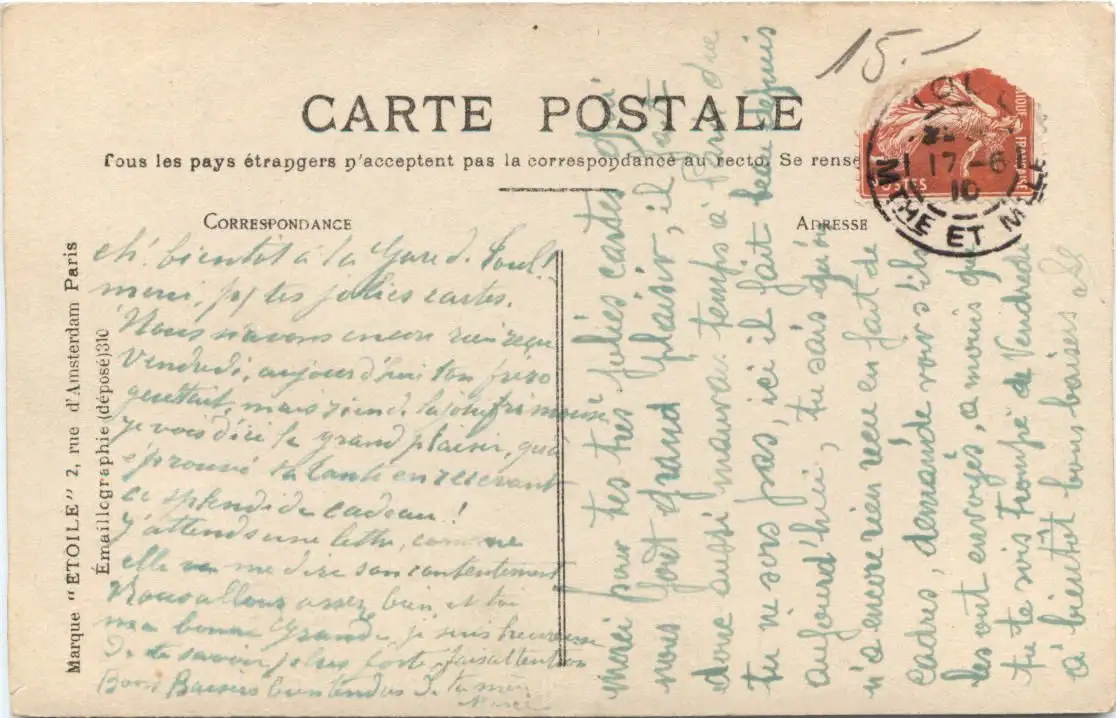 15.-
CARTE POSTALE
Tous les pays étrangers n'acceptent pas la correspondance au recto. Se rense
CORRESPONDANCE
ADRESSE
17-6
10
MTHE ET MLLE
POSTES
FRANÇAISE
Marque "ETOILE" 2, rue d'Amsterdam Paris
Émaillographie (déposé) 310
bientôt à la Gare d. Toul!
merci, p/ tes jolies cartes.
Nous n'avons encore rien reçu
Vendredi, aujourd'hui ton frero
guettait, mais rien d. la jolie frimousse
je vois d'ici le grand plaisir, qu'a
éprouvé ta tante en recevant
ce splendide cadeau!
j'attends une lettre, comme
elle va me dire son contentement
Nous allons assez bien, et toi
ma bonne Grande, je suis heureuse
de te savoir plus forte, fais attention
Bons Baisers bien tendres de ta mère
Merci pour tes très jolies cartes qui
nous font grand plaisir, il fait
donc aussi mauvais temps à que
tu ne sors pas, ici il fait beau depuis
aujourd'hui, tu sais qu'on
n'a encore rien reçu en fait de
cadres, demande voir s'ils
les ont envoyés, a moins que
tu te sois trompé de Vendredi
à bientôt bons baisers